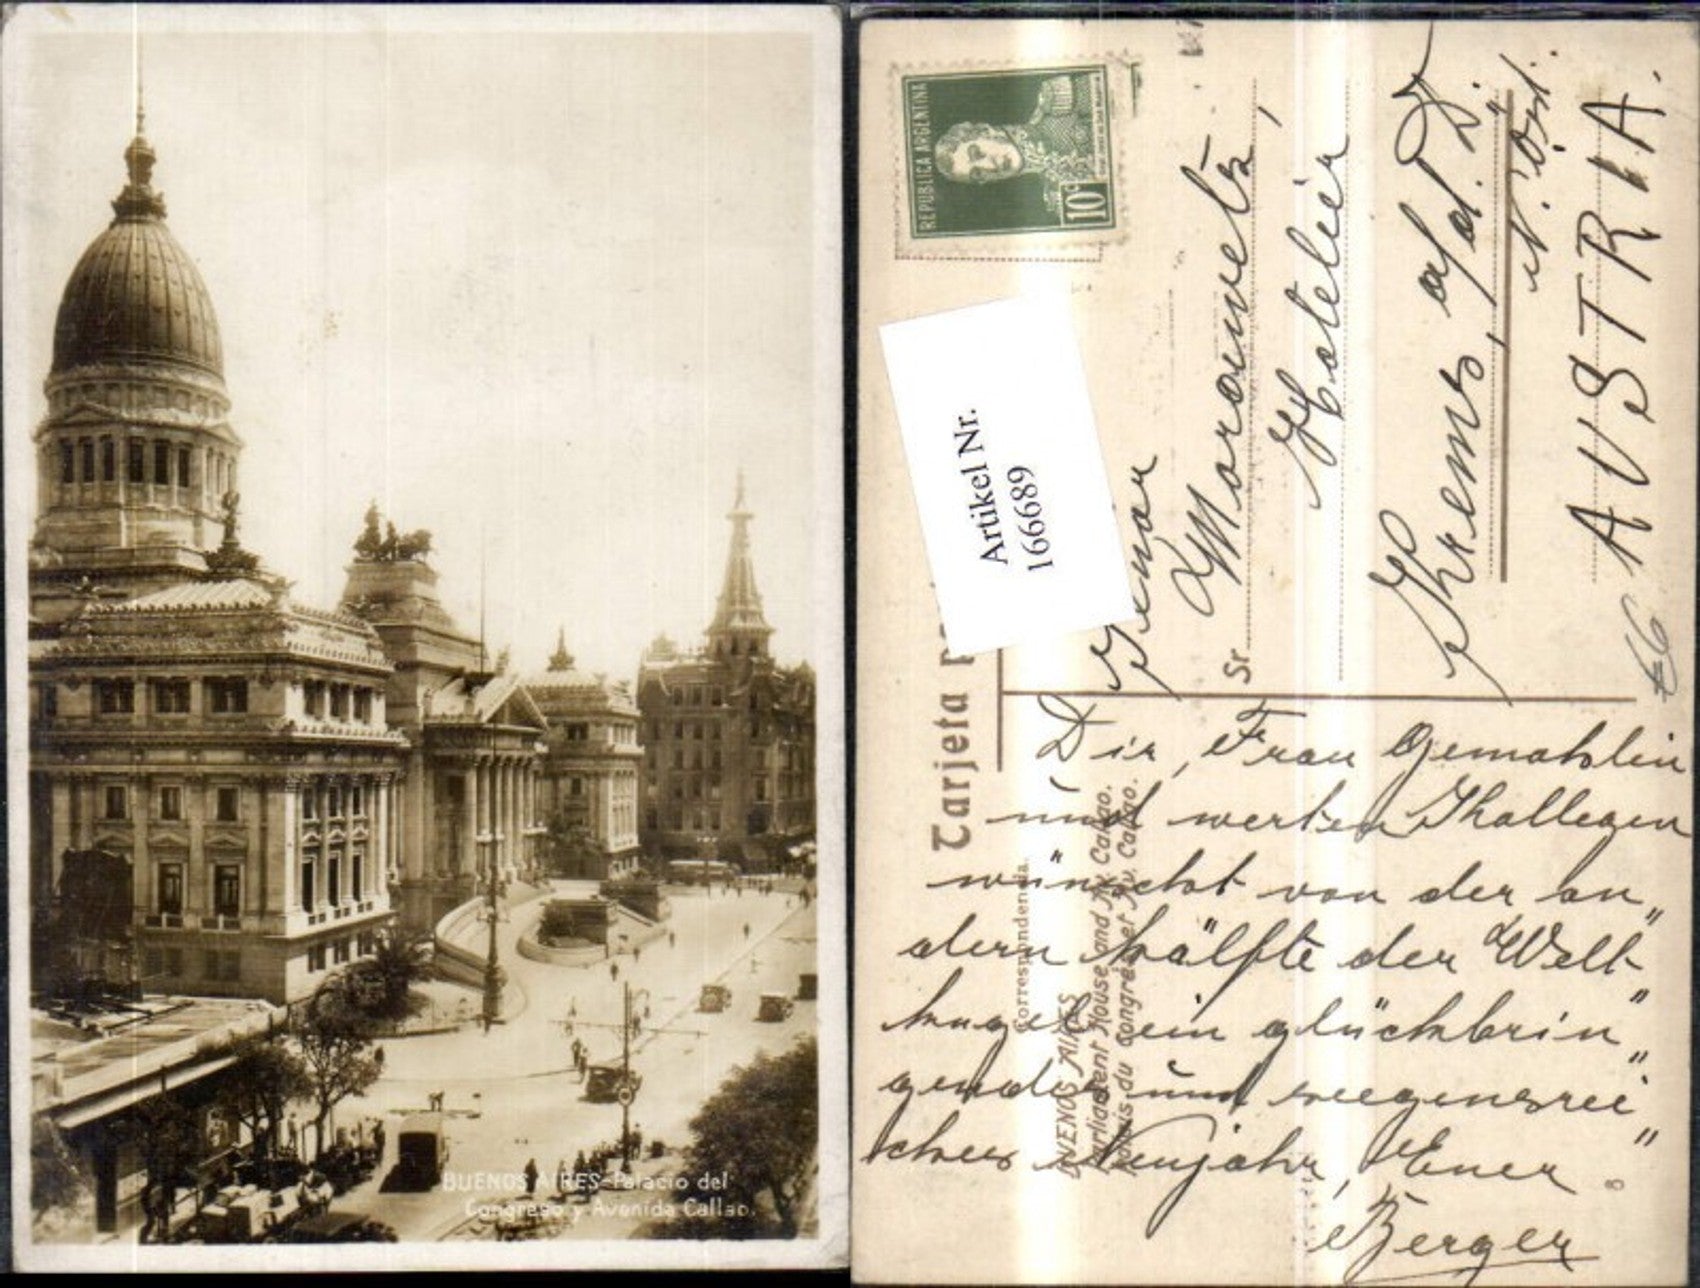 BUENOS AIRES-Palacio del
Congreso y Avenida Callao.
REPUBLICA ARGENTINA
10c
Artikel Nr.
166689
Tarjeta
Correspondencia.
BUENOS AIRES
Parliament House and Av. Callao.
Palais du Congrès et Av. Callao.
Dir, Frau Gemahlin
und werten Khollegen
wünscht von der an„
dern Hälfte der Welt„
kugel ein glückbrin„
gendes und seegensrei„
ches Neujahr, Euer
Berger
Sr. Morawetz,
Hotelier
Krems, a/d. D.
N. Öst.
AUSTRIA.
8